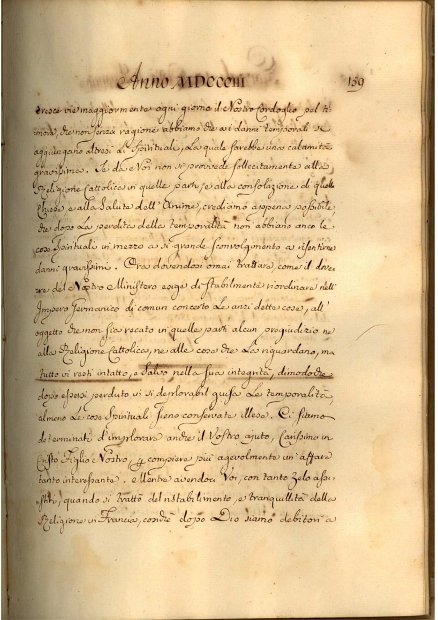 Anno MDCCCIII
159
cresce vie maggiormente ogni giorno il Nostro Cordoglio pel ti=
more, che non senza ragione abbiamo che ai danni temporali si
aggiungano altresì li Spirituali, La quale sarebbe una calamità
gravissima. Se da Noi non si provvede sollecitamente alla
Religione Cattolica in quelle parti, e alla consolazione di quelle
Chiese e alla Salute dell'Anime, crediamo appena possibile
che dopo La perdita della temporalità non abbiano anco le
cose Spirituali in mezzo a sì grande sconvolgimento a risentire
danni gravissimi. Ora dovendosi omai trattare, come il dove=
re del Nostro Ministero esige di stabilmente riordinare nell'
Impero Germanico di comun concerto Le anzi dette cose, all'
oggetto che non sia recato in quelle parti alcun pregiudizio ne
alla Religione Cattolica, ne alle cose che La riguardano, ma
tutto vi resti intatto, e Salvo nella sua integrità, dimodoche
dopo essersi perduto vi si deplorabil guisa Le temporalità,
almeno Le cose Spirituali sieno conservate illese. Ci siamo
determinati d'implorare anche il Vostro ajuto, Carissimo in
Cristo Figlio Nostro, p compiere più agevolmente un'affare
tanto interessante. e Mentre avendoci Voi, con tanto Zelo assi=
stito, quando si trattò del ristabilimento, e tranquillità della
Religione in Francia, condè dopo Dio siamo debitori a